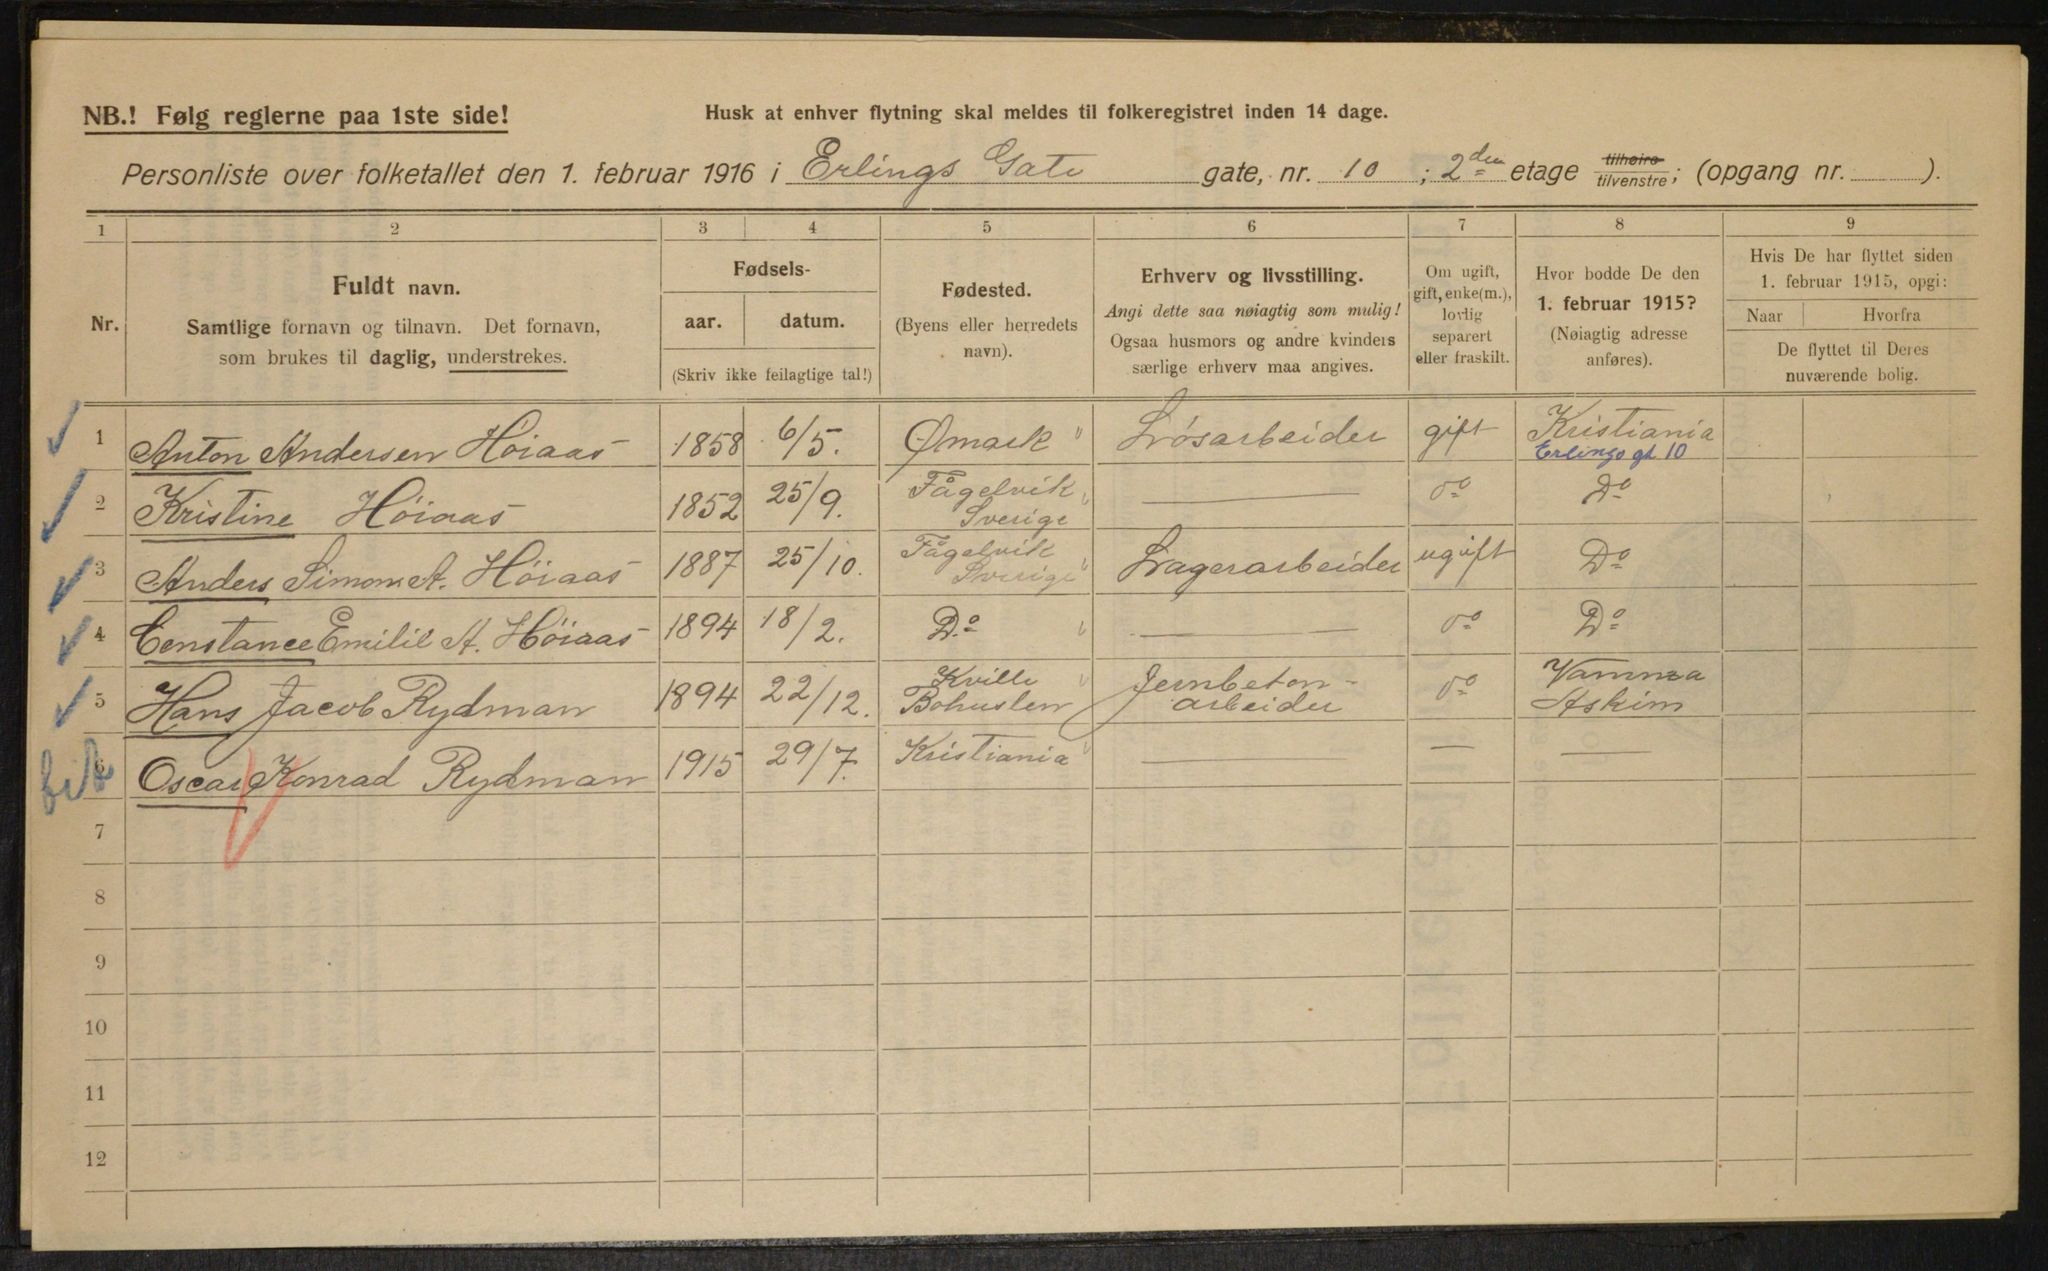 NB.! Følg reglerne paa 1ste side!
Husk at enhver flytning skal meldes til folkeregistret inden 14 dage.
Personliste over folketallet den 1. februar 1916 i Erlings Gate gate, nr. 10 ; 2den etage tilhøire tilvenstre; (opgang nr. ).
1 2 3 4 5 6 7 8 9
Nr.
Fuldt navn.
Samtlige fornavn og tilnavn. Det fornavn,
som brukes til daglig, understrekes.
Fødsels-
aar. datum.
(Skriv ikke feilagtige tal!)
Fødested.
(Byens eller herredets
navn).
Erhverv og livsstilling.
Angi dette saa nøiagtig som mulig!
Ogsaa husmors og andre kvinders
særlige erhverv maa angives.
Om ugift,
gift, enke(m.),
lovlig
separert
eller fraskilt.
Hvor bodde De den
1. februar 1915?
(Nøiagtig adresse
anføres).
Hvis De har flyttet siden
1. februar 1915, opgi:
Naar Hvorfra
De flyttet til Deres
nuværende bolig.
1 Anton Andersen Höiaas 1858 6/5. Ømark " Lösarbeider gift Kristiania
Erlings gt 10
2 Kristine Höiaas 1852 25/9. Fågelvik "
Sverige — do Do
3 Anders Simon A. Höiaas 1887 25/10. Fågelvik
Sverige " Lagerarbeider ugift Do
4 Constance Emilie A. Höiaas 1894 18/2. Do " — do Do
5 Hans Jacob Rydman 1894 22/12. Kville "
Bohuslen Jernbeton-
arbeider do Vamma
Askim
6 Oscar Konrad Rydman 1915 29/7. Kristiania " — — —
7
8
9
10
11
12